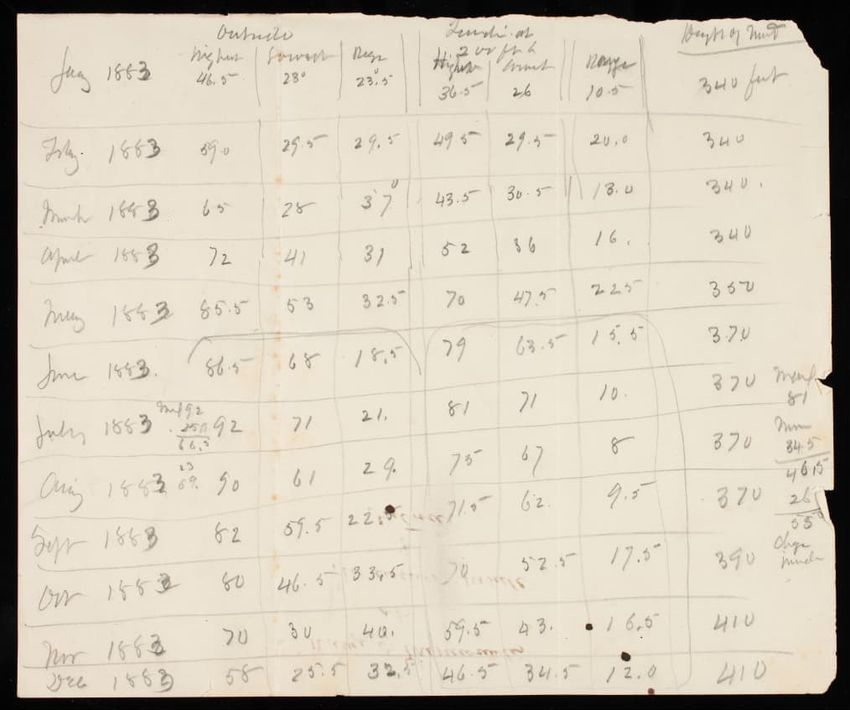 Outside Tunnel at Depth of Tunl
Highest Lowest Range 200 ft & Highest Lowest Range
Jany 1883 46.5 23° 23.5 36.5 26 10.5 340 feet
Feby. 1883 59.0 29.5 29.5 49.5 29.5 20.0 340
March 1883 65 28 37° 43.5 30.5 13.0 340.
April 1883 72 41 31 52 36 16. 340
May 1883 85.5 53 32.5 70 47.5 225 350
June 1883. 86.5 68 18.5 79 63.5 15.5 370
July 1883 92 71 21. 81 71 10. 370
81
Aug 1883 90 61 29. 75 67 8 370
34.5
46.5
Sept 1883 82 59.5 22.5 71.5 62. 9.5 370
26
55
Oct 1883 80 46.5 33.5 70 52.5 17.5 390
Nov 1883 70 30 40. 59.5 43. 16.5 410
Dec 1883 58 25.5 32.5 46.5 34.5 12.0 410